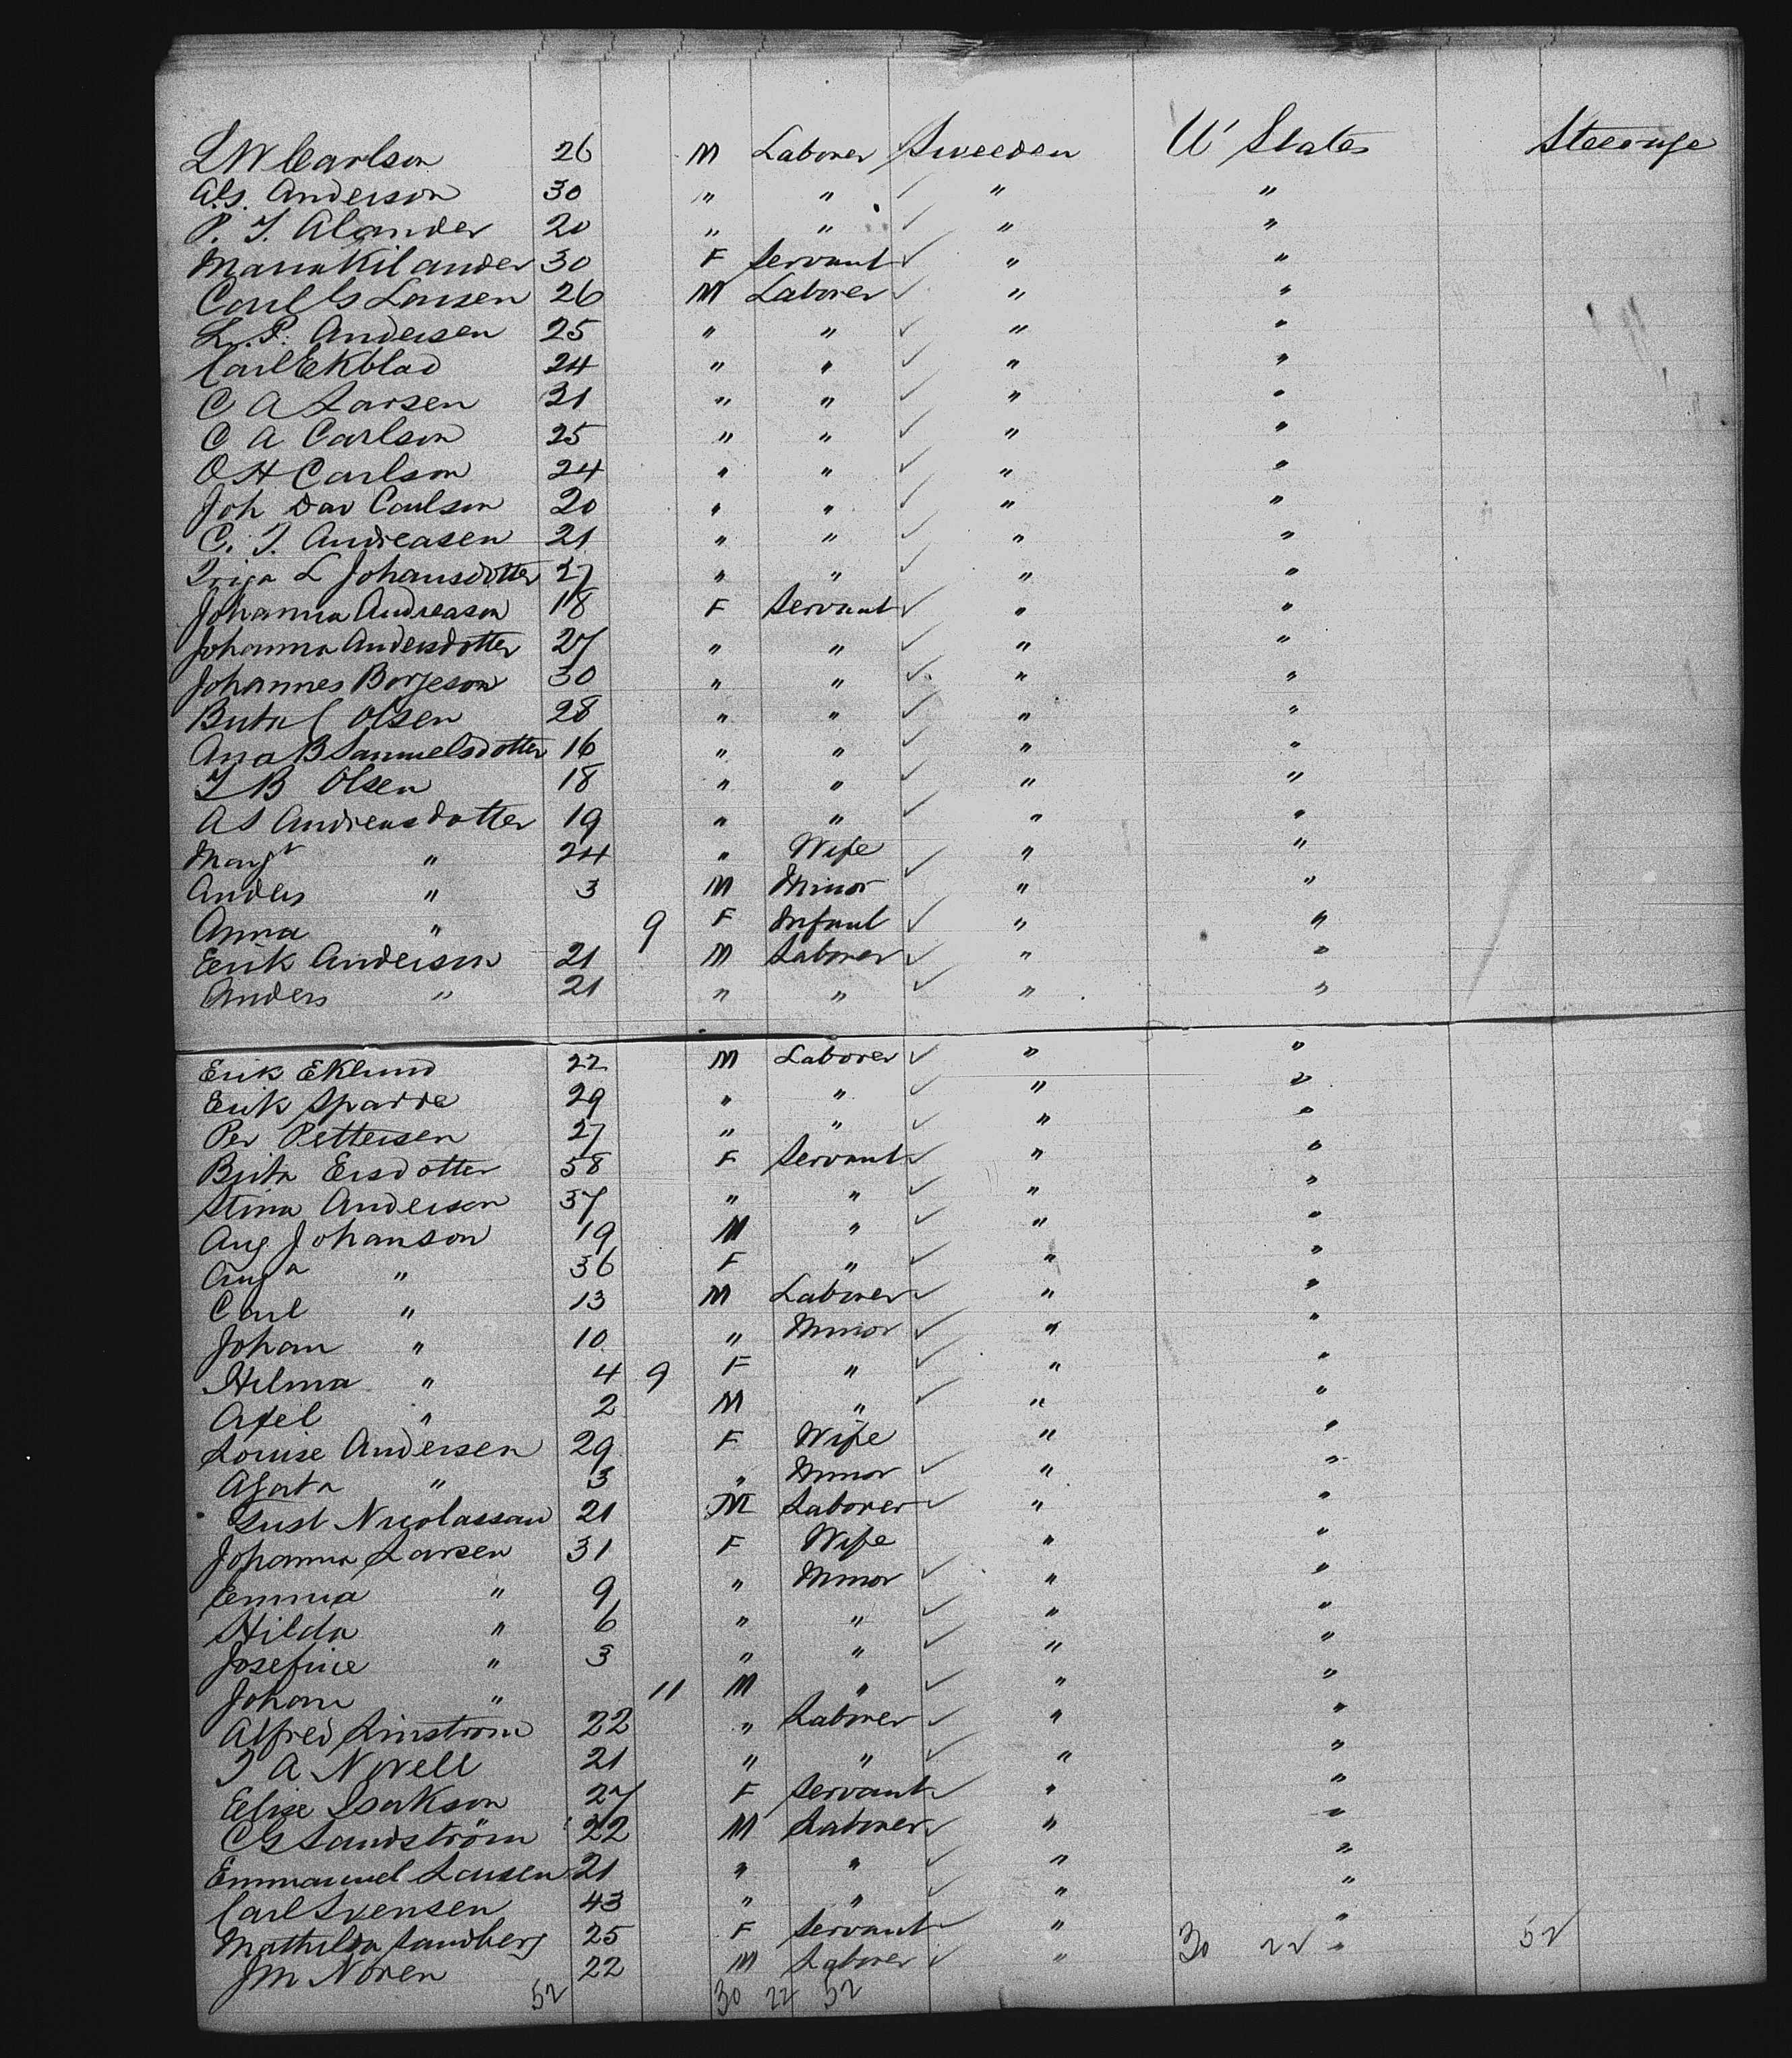 L W Carlson 26 M Laborer Sweeden U' States Steerage
A. S. Anderson 30 " " " "
P. J. Alander 20 " " " "
Maria Kilander 30 F Servant " "
Carl G Larsen 26 M Laborer " "
L. P. Andersen 25 " " " "
Carl Ekblad 24 " " " "
C A Larsen 21 " " " "
C A Carlson 25 " " " "
O H Carlson 24 " " " "
Joh Dav Carlson 20 " " " "
C. J. Andreasen 21 " " " "
L Johansdotter 27 " " " "
Johanna Andreason 18 F Servant " "
Johanna Andersdotter 27 " " " "
Johannes Borjeson 30 " " " "
C Olsen 28 " " " "
Ana B Samuelsdotter 16 " " " "
J B Olsen 18 " " " "
A S Andreasdotter 19 " " " "
Margt " 24 " Wife " "
Anders " 3 M Minor " "
Anna " 9 F Infant " "
Erik Anderson 21 M Laborer " "
Anders " 21 " " " "
Erik Eklund 22 M Laborer " "
Erik Sparre 29 " " " "
Per Pettersen 27 " " " "
Brita Ersdotter 58 F Servant " "
Stina Anderson 37 " " " "
Aug Johanson 19 M " " "
Auga " 36 F " " "
Carl " 13 M Laborer " "
Johan " 10 " Minor " "
Hilma " 4 9 F " " "
Axel " 2 M " " "
Louise Andersen 29 F Wife " "
Agata " 3 " Minor " "
Gust Nicolassan 21 M Laborer " "
Johanna Larsen 31 F Wife " "
Emma " 9 " Minor " "
Hilda " 6 " " " "
Josefine " 3 " " " "
Johan " 11 M " " "
Alfred Linstrom 22 " Laborer " "
J A Norell 21 " " " "
Elise Isakson 27 F Servant " "
C G Sandström 22 M Laborer " "
Emmanuel Larsen 21 " " " "
Carl Svensen 43 " " " "
Mathilda Sandberg 25 F Servant " "
J M Noren 22 M Laborer " 30 22 " 52
52 30 22 52